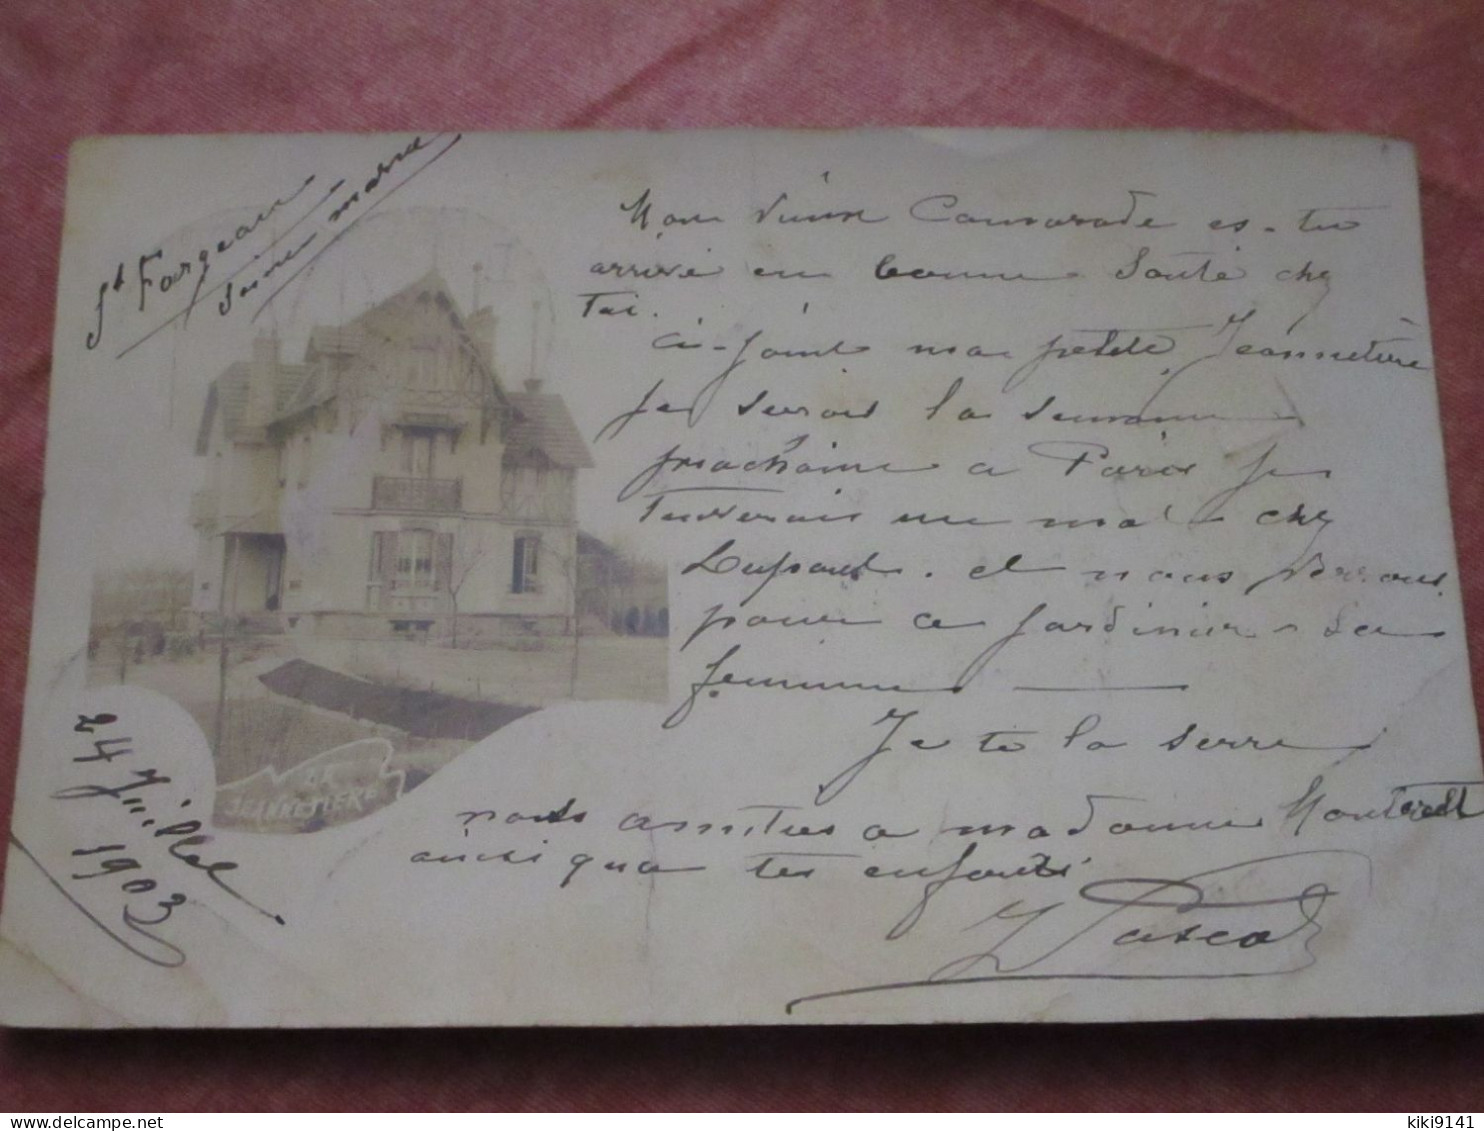 St Fargeau
Seine marne
Mon vieux Camarade es-tu
arrivé en bonne Santé chez
Toi.
ci-joint ma petite Jeannetière
Je serais la semaine
prochaine a Paris Je
un mot chez
Dupont. et nous verrons
pour ce Jardinier - sa
femme
Je te la serre
nos amities a madame
ainsi qua tes enfants
Pascal
24 Juillet
1903
LA
JEANNETIERE
delcampe.net
kiki9141